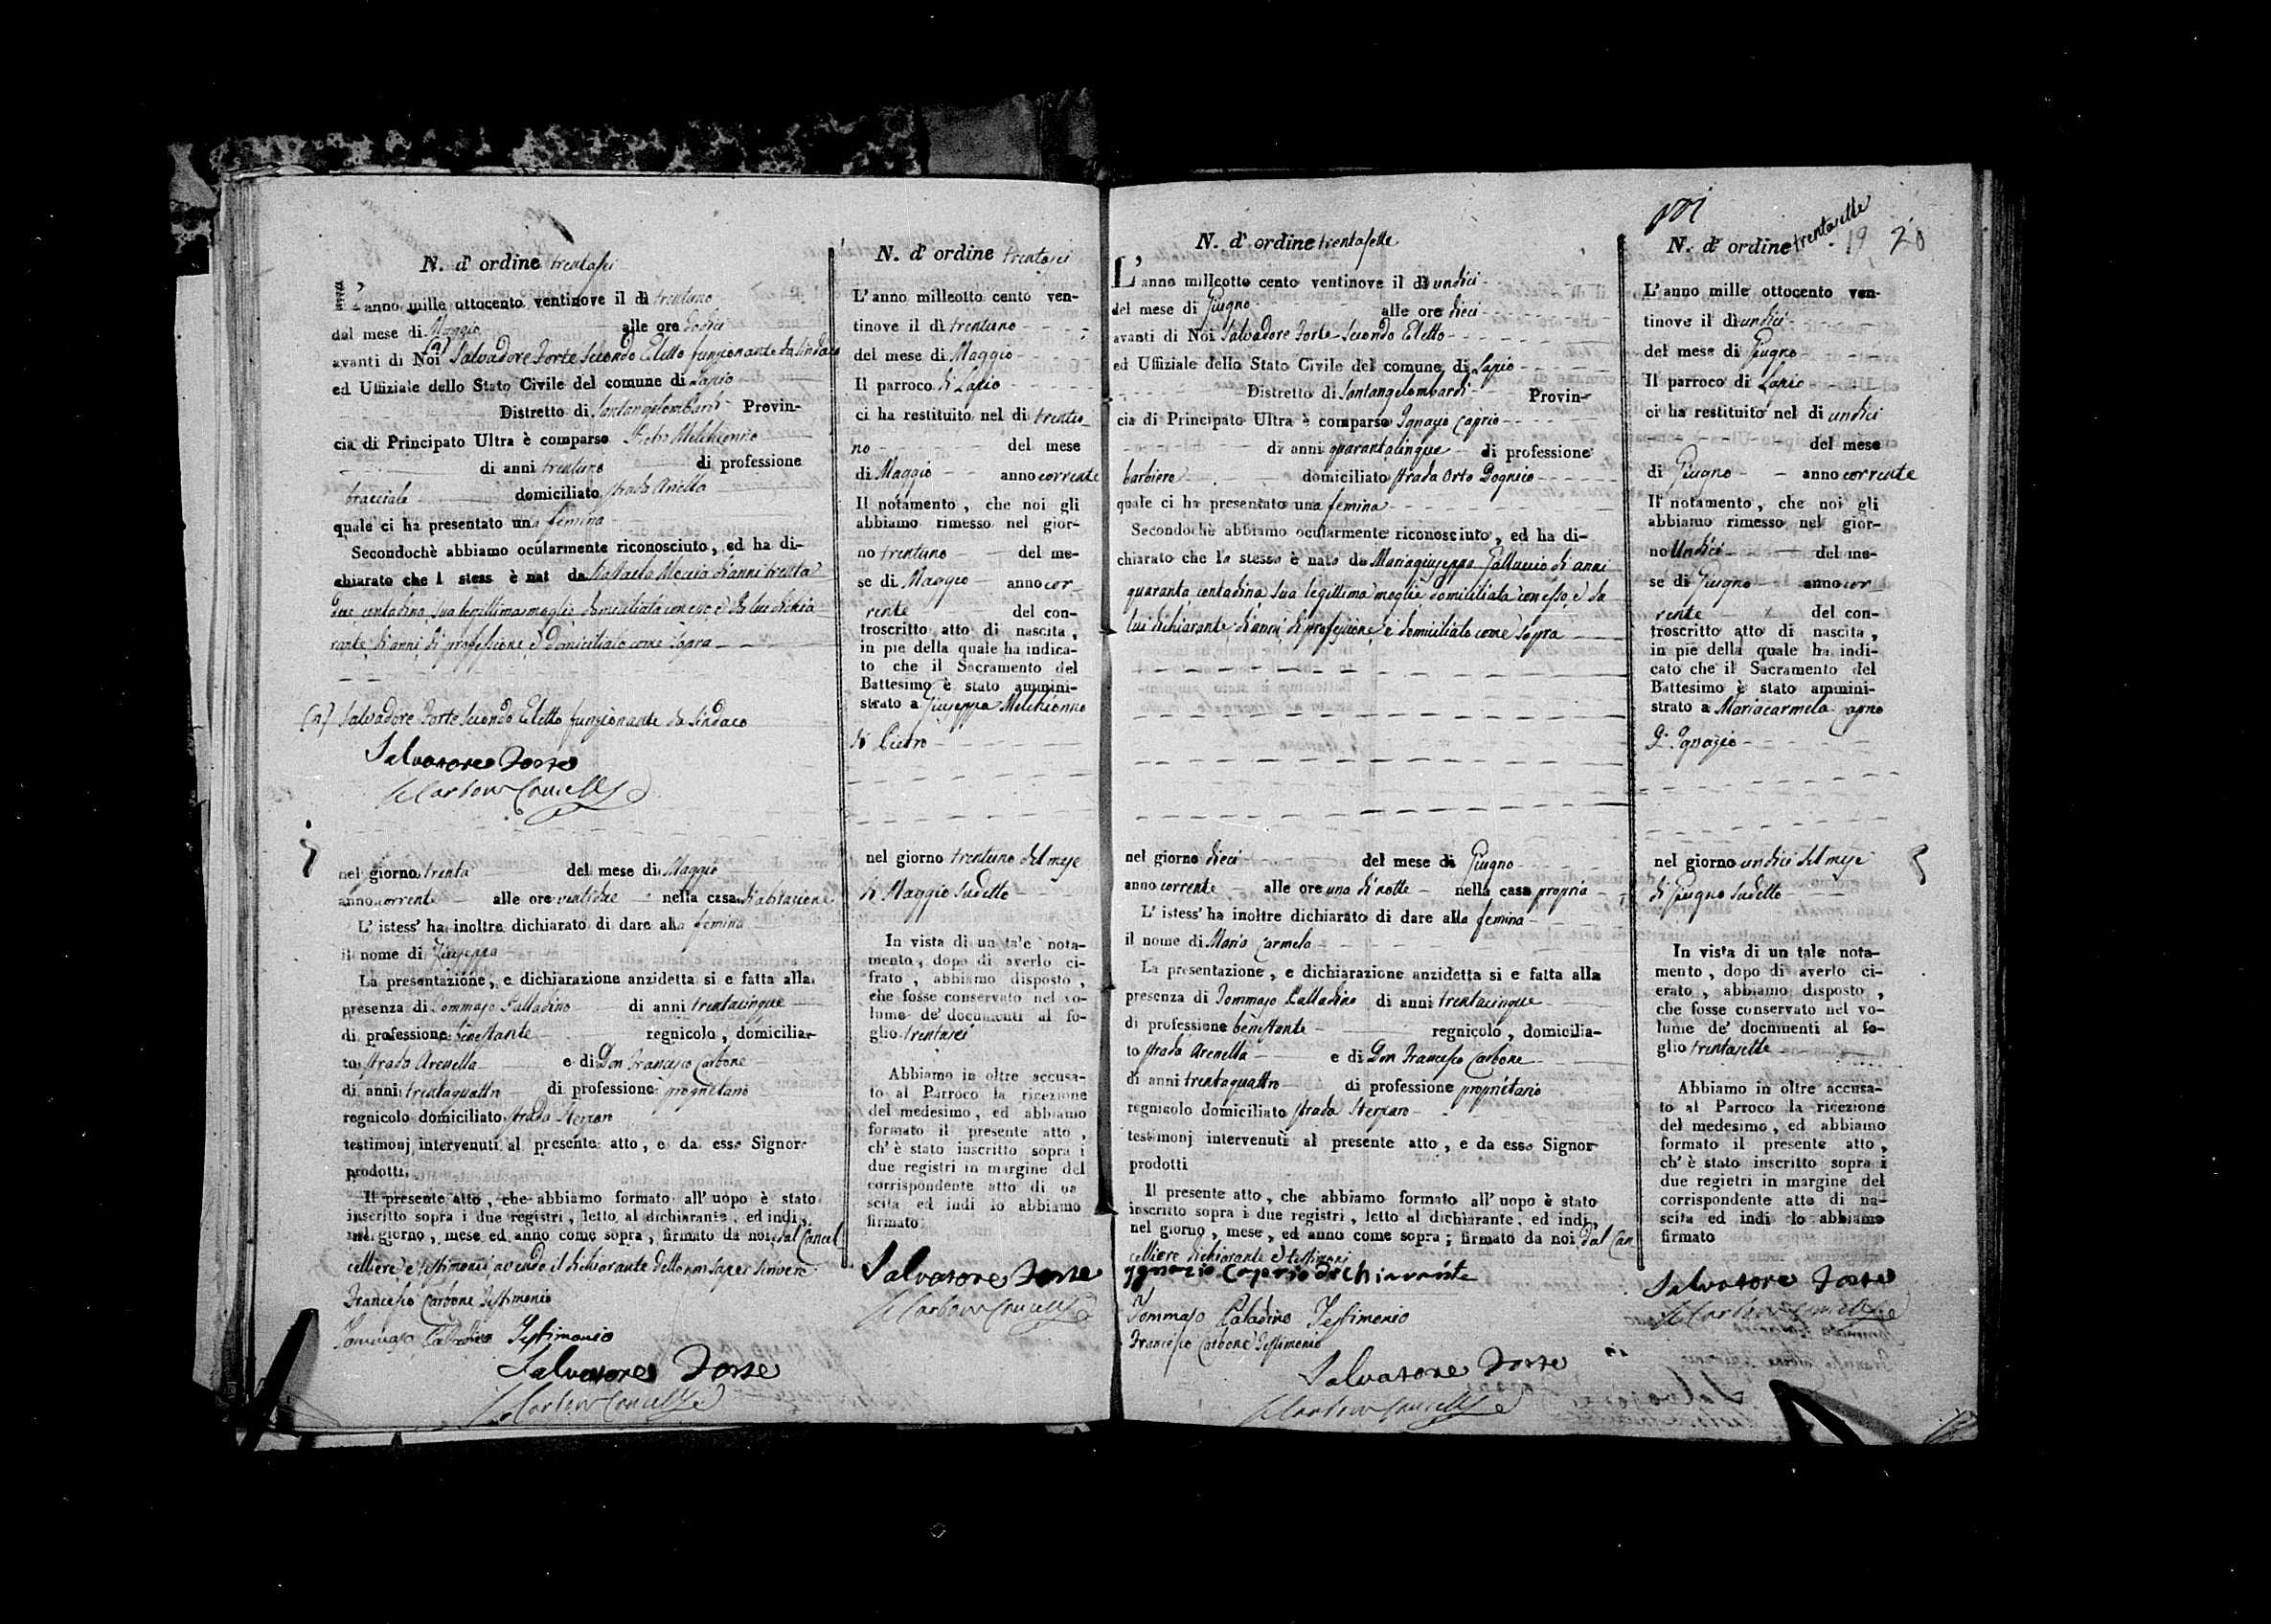 N. d'ordine trentasei
L'anno mille ottocento ventinove il dì trentuno
del mese di Maggio alle ore dodici
avanti di Noi (a) Salvadore Forte Secondo Eletto funzionante da Sindaco
ed Uffiziale dello Stato Civile del comune di Lapio
Distretto di Santangelombardi Provin-
cia di Principato Ultra è comparso Pietro Melchionno
di anni trentuno di professione
bracciale domiciliato strada Arenella
quale ci ha presentato una femina
Secondochè abbiamo ocularmente riconosciuto, ed ha di-
chiarato che l stess è nat da Raffaela Meccia di anni trenta
due contadina sua legittima moglie domiciliata con esso, e da lui dichia
rante di anni di professione e domiciliato come sopra
(a) Salvadore Forte Secondo Eletto funzionante da Sindaco
Salvatore Forte
Carbone Cancell
nel giorno trenta del mese di Maggio
anno corrente alle ore ventidue nella casa di abitazione
L'istess' ha inoltre dichiarato di dare alla femina
il nome di Giuseppa
La presentazione, e dichiarazione anzidetta si e fatta alla
presenza di Tommaso Palladino di anni trentacinque
di professione benestante regnicolo, domicilia-
to strada Arenella e di Don Francesco Carbone
di anni trentaquattro di professione proprietario
regnicolo domiciliato strada
testimonj intervenuti al presente atto, e da esso Signor
prodotti.
Il presente atto, che abbiamo formato all'uopo è stato
inscritto sopra i due registri, letto al dichiarante, ed indi,
nel giorno, mese, ed anno come sopra, firmato da noi, dal Cancel
celliere e testimonj avendo il dichiarante detto non saper scrivere
Francesco Carbone Testimonio
Tommaso Paladino Testimonio
Salvatore Forte
Carbone Cancell
N. d'ordine trentasei
L'anno milleotto cento ven-
tinove il dì trentuno
del mese di Maggio
Il parroco di Lapio
ci ha restituito nel di trentu
no del mese
di Maggio anno corrente
Il notamento, che noi gli
abbiamo rimesso nel gior-
no trentuno del me-
se di Maggio anno cor_
rente del con-
troscritto atto di nascita,
in pie della quale ha indica-
to che il Sacramento del
Battesimo è stato ammini-
strato a Giuseppa Melchionno
di Pietro
nel giorno trentuno del mese
di Maggio sudetto
In vista di un tale nota-
mento, dopo di averlo ci-
frato, abbiamo disposto,
che fosse conservato nel vo-
lume de' documenti al fo-
glio trentasei
Abbiamo in oltre accusa-
to al Parroco la ricezione
del medesimo, ed abbiamo
formato il presente atto,
ch'è stato inscritto sopra i
due registri in margine del
corrispondente atto di na
scita ed indi lo abbiamo
firmato
Salvatore Forte
Carbone Cancell
N. d'ordine trentasette
L'anno milleotto cento ventinove il dì undici
del mese di Giugno alle ore dieci
avanti di Noi Salvadore Forte Secondo Eletto
ed Uffiziale dello Stato Civile del comune di Lapio
Distretto di Santangelombardi Provin-
cia di Principato Ultra è comparso Ignazio Caprio
di anni quarantacinque di professione
barbiere domiciliato strada Orto Dognico
quale ci ha presentato una femina
Secondochè abbiamo ocularmente riconosciuto, ed ha di-
chiarato che la stessa è nata da Mariagiuseppa Galluccio di anni
quaranta contadina sua legittima moglie domiciliata con esso, e da
lui dichiarante di anni di professione, e domiciliato come sopra
nel giorno dieci del mese di Giugno
anno corrente alle ore una di notte nella casa propria
L'istess' ha inoltre dichiarato di dare alla femina
il nome di Maria Carmela
La presentazione, e dichiarazione anzidetta si e fatta alla
presenza di Tommaso Palladino di anni trentacinque
di professione benestante regnicolo, domicilia-
to strada Arenella e di Don Francesco Carbone
di anni trentaquattro di professione proprietario
regnicolo domiciliato strada
testimonj intervenuti al presente atto, e da esso Signor
prodotti
Il presente atto, che abbiamo formato all'uopo è stato
inscritto sopra i due registri, letto al dichiarante, ed indi,
nel giorno, mese, ed anno come sopra; firmato da noi dal Can
celliere dichiarante e testimonj
Ignazio Caprio dichiarante
Tommaso Paladino Testimonio
Francesco Carbone Testimonio
Salvatore Forte
Carbone Cancell
N. d'ordine trentasette
19 20
L'anno mille ottocento ven-
tinove il dì undici
del mese di Giugno
Il parroco di Lapio
ci ha restituito nel di undici
del mese
di Giugno anno corrente
Il notamento, che noi gli
abbiamo rimesso nel gior-
no Undici del me-
se di Giugno anno cor_
rente del con-
troscritto atto di nascita,
in pie della quale ha indi-
cato che il Sacramento del
Battesimo è stato ammini-
strato a Mariacarmela Caprio
D' Ignazio
nel giorno undici del mese
di Giugno sudetto
In vista di un tale nota-
mento, dopo di averlo ci-
erato, abbiamo disposto,
che fosse conservato nel vo-
lume de' documenti al fo-
glio trentasette
Abbiamo in oltre accusa-
to al Parroco la ricezione
del medesimo, ed abbiamo
formato il presente atto,
ch'è stato inscritto sopra i
due regietri in margine del
corrispondente atto di na-
scita ed indi lo abbiamo
firmato
Salvatore Forte
Carbone Cancell